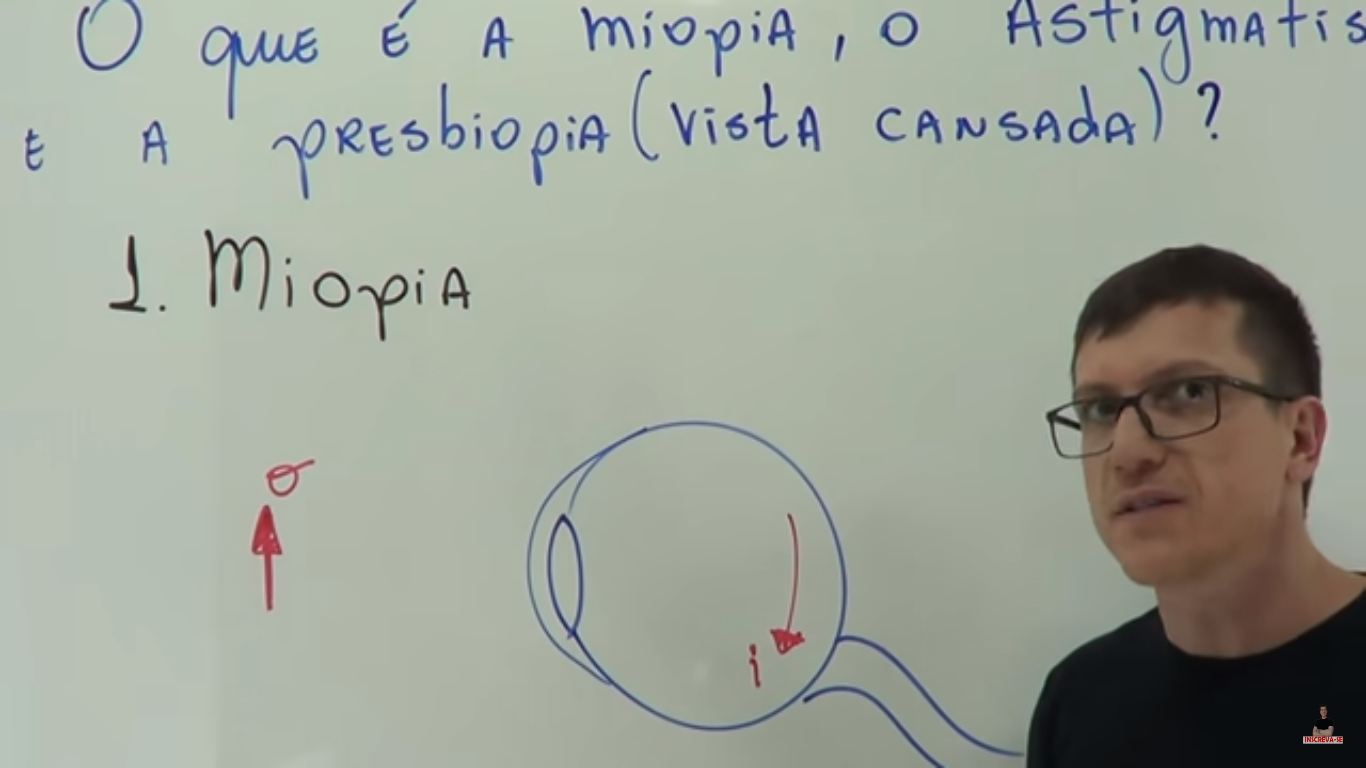 O que É A miopiA, o Astigmatis
E A pRESbiopiA (VistA CANSAdA)?
1. MiopiA
o
i
INSCREVA-SE